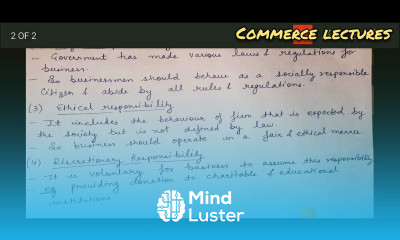 2 OF 2
COMMERCE LECTURES
- Government has made various laws & regulations for
business.
- So businessmen should behave as a socially responsible
Citizen & abide by all rules & regulations.
(3) Ethical responsibility
- It includes the behaviour of firm that is expected by
the society but is not defined by law.
- So business should operate in a fair & ethical manner
(4) Discretionary Responsibility
- It is voluntary for business to assume this responsibility
eg providing donation to charitable & educational
institutions.
Mind
Luster